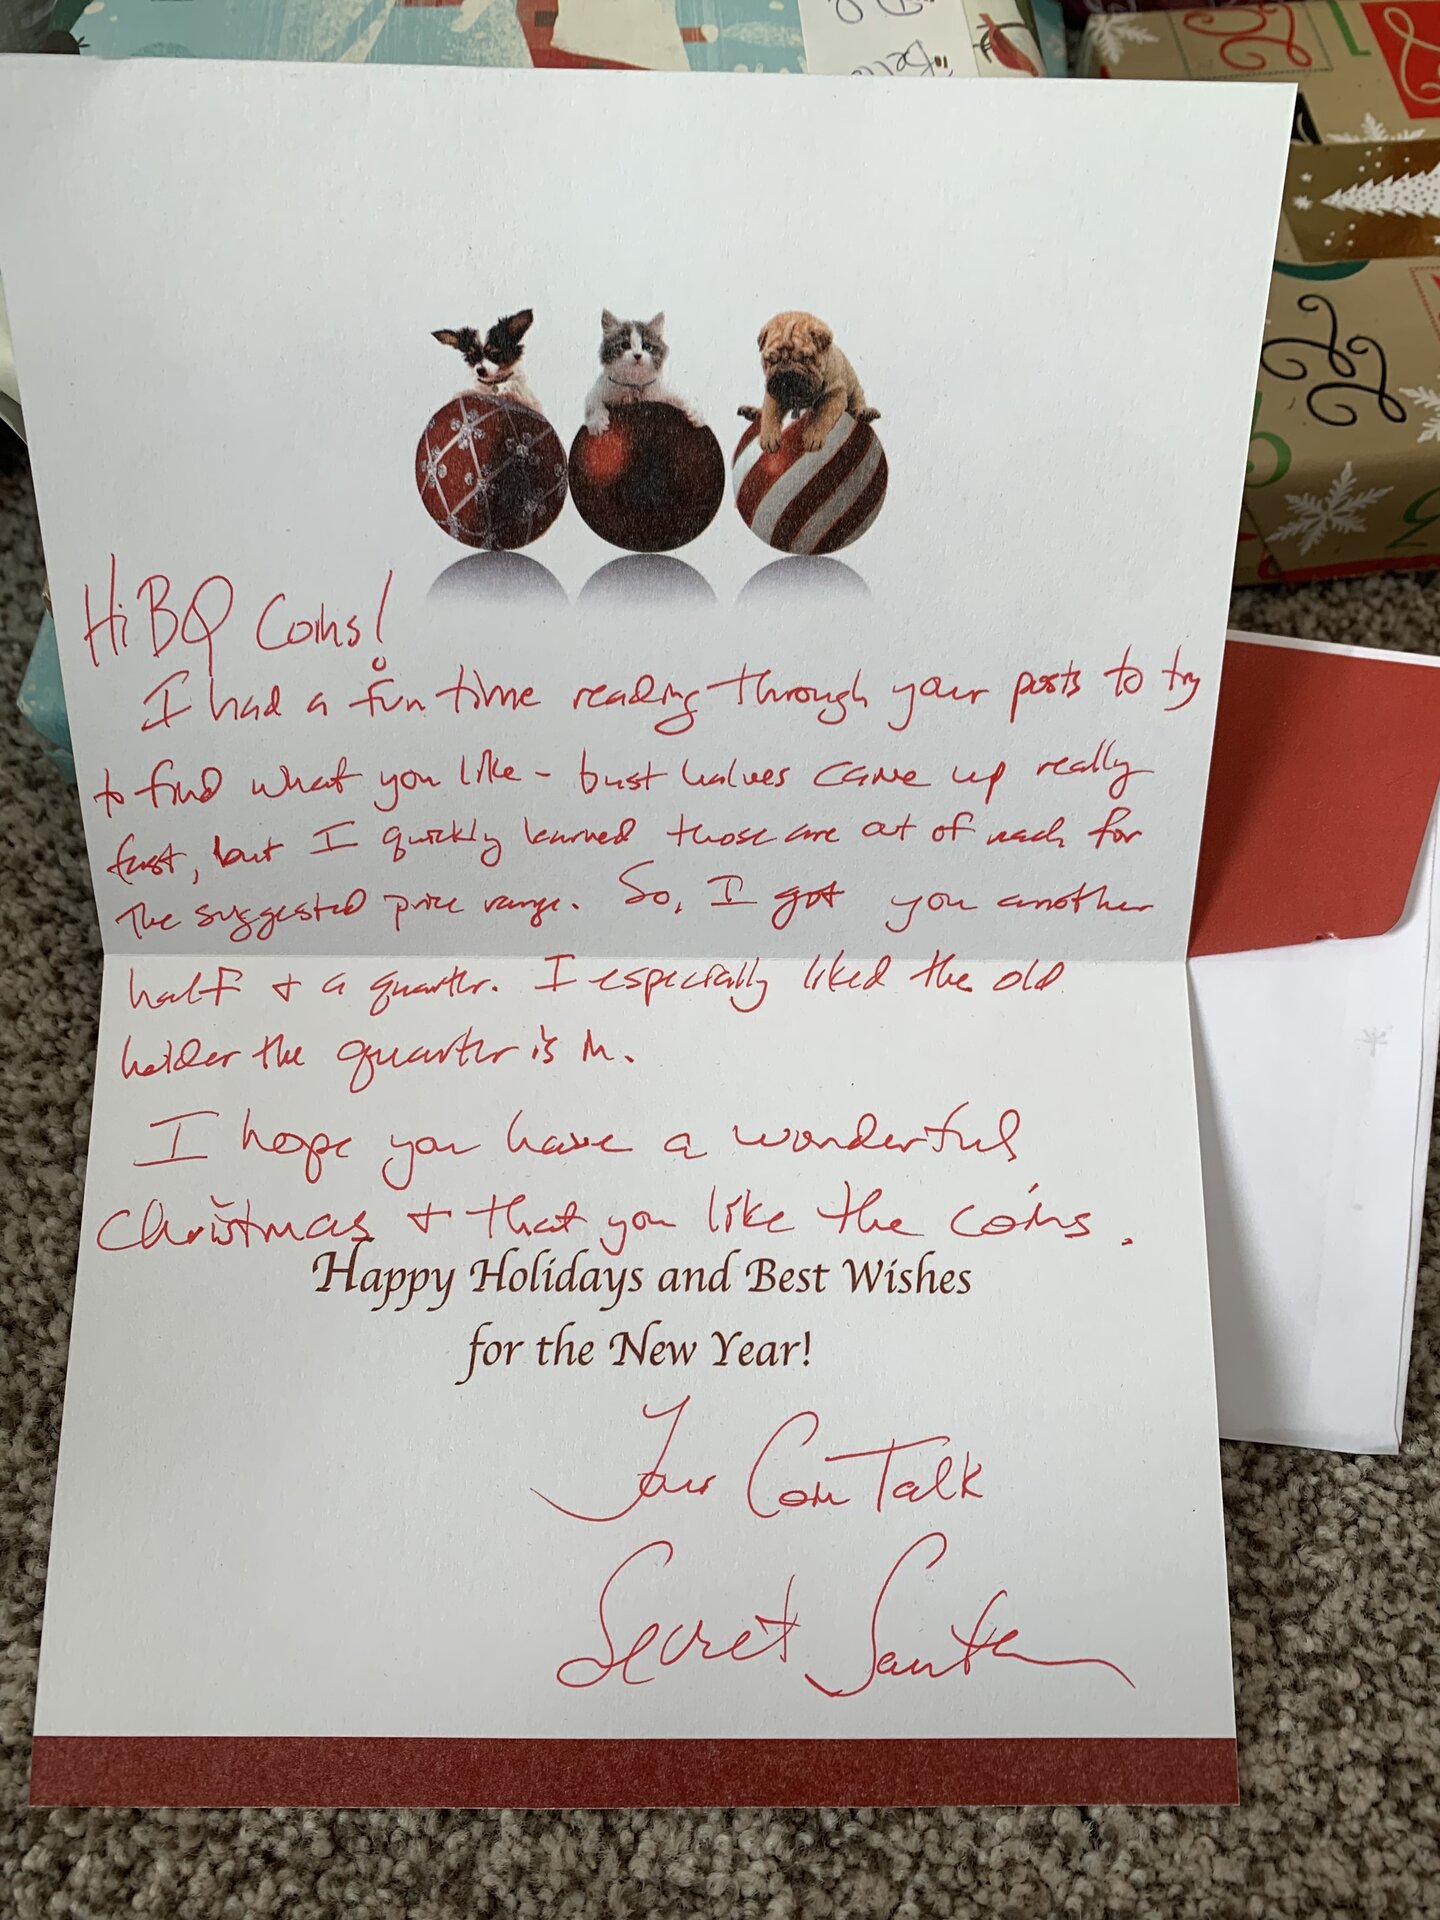 "Bella
Hi BQ Coins!
I had a fun time reading through your posts to try
to find what you like - bust halves came up really
fast, but I quickly learned those are out of reach for
the suggested price range. So, I got you another
half + a quarter. I especially liked the old
holder the quarter is in.
I hope you have a wonderful
Christmas + that you like the coins.
Happy Holidays and Best Wishes
for the New Year!
Your Coin Talk
Secret Santa